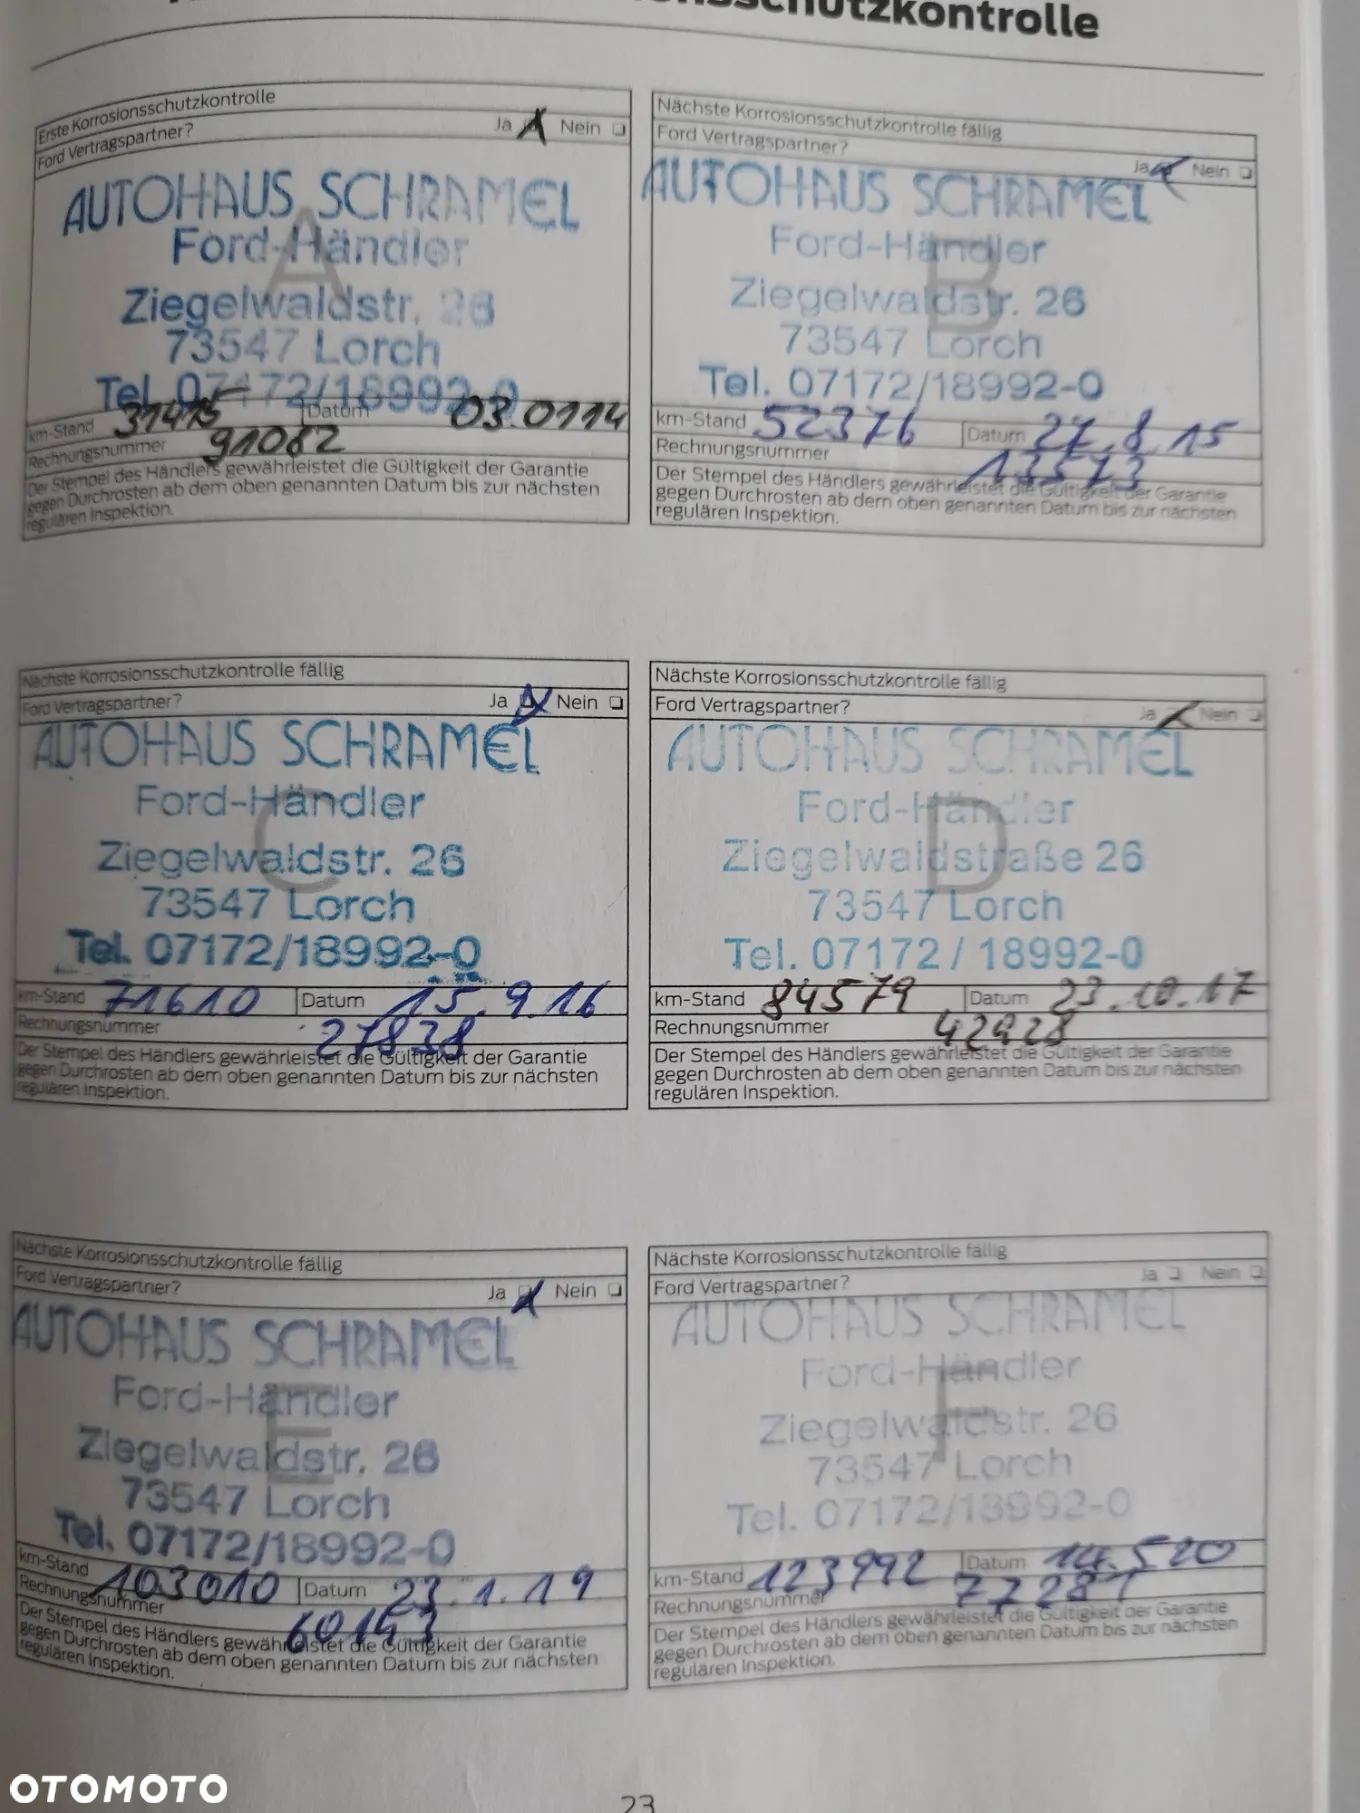 onsschutzkontrolle
Erste Korrosionsschutzkontrolle
Ford Vertragspartner? Ja Nein
A
AUTOHAUS SCHRAMEL
Ford-Händler
Ziegelwaldstr. 26
73547 Lorch
Tel. 07172/18992-0
km-Stand 31415 Datum 03.0114
Rechnungsnummer 91082
Der Stempel des Händlers gewährleistet die Gültigkeit der Garantie
gegen Durchrosten ab dem oben genannten Datum bis zur nächsten
regulären Inspektion.
Nächste Korrosionsschutzkontrolle fällig
Ford Vertragspartner? Ja Nein
B
AUTOHAUS SCHRAMEL
Ford-Händler
Ziegelwaldstr. 26
73547 Lorch
Tel. 07172/18992-0
km-Stand 52376 Datum 27.8.15
Rechnungsnummer 13573
Der Stempel des Händlers gewährleistet die Gültigkeit der Garantie
gegen Durchrosten ab dem oben genannten Datum bis zur nächsten
regulären Inspektion.
Nächste Korrosionsschutzkontrolle fällig
Ford Vertragspartner? Ja Nein
C
AUTOHAUS SCHRAMEL
Ford-Händler
Ziegelwaldstr. 26
73547 Lorch
Tel. 07172/18992-0
km-Stand 71610 Datum 15.9.16
Rechnungsnummer 27838
Der Stempel des Händlers gewährleistet die Gültigkeit der Garantie
gegen Durchrosten ab dem oben genannten Datum bis zur nächsten
regulären Inspektion.
Nächste Korrosionsschutzkontrolle fällig
Ford Vertragspartner? Ja Nein
D
AUTOHAUS SCHRAMEL
Ford-Händler
Ziegelwaldstraße 26
73547 Lorch
Tel. 07172 / 18992-0
km-Stand 84579 Datum 23.10.17
Rechnungsnummer 42928
Der Stempel des Händlers gewährleistet die Gültigkeit der Garantie
gegen Durchrosten ab dem oben genannten Datum bis zur nächsten
regulären Inspektion.
Nächste Korrosionsschutzkontrolle fällig
Ford Vertragspartner? Ja Nein
E
AUTOHAUS SCHRAMEL
Ford-Händler
Ziegelwaldstr. 26
73547 Lorch
Tel. 07172/18992-0
km-Stand 103010 Datum 23.1.19
Rechnungsnummer 60143
Der Stempel des Händlers gewährleistet die Gültigkeit der Garantie
gegen Durchrosten ab dem oben genannten Datum bis zur nächsten
regulären Inspektion.
Nächste Korrosionsschutzkontrolle fällig
Ford Vertragspartner? Ja Nein
F
AUTOHAUS SCHRAMEL
Ford-Händler
Ziegelwaldstr. 26
73547 Lorch
Tel. 07172/18992-0
km-Stand 123992 Datum 14.5.20
Rechnungsnummer 77281
Der Stempel des Händlers gewährleistet die Gültigkeit der Garantie
gegen Durchrosten ab dem oben genannten Datum bis zur nächsten
regulären Inspektion.
23
OTOMOTO